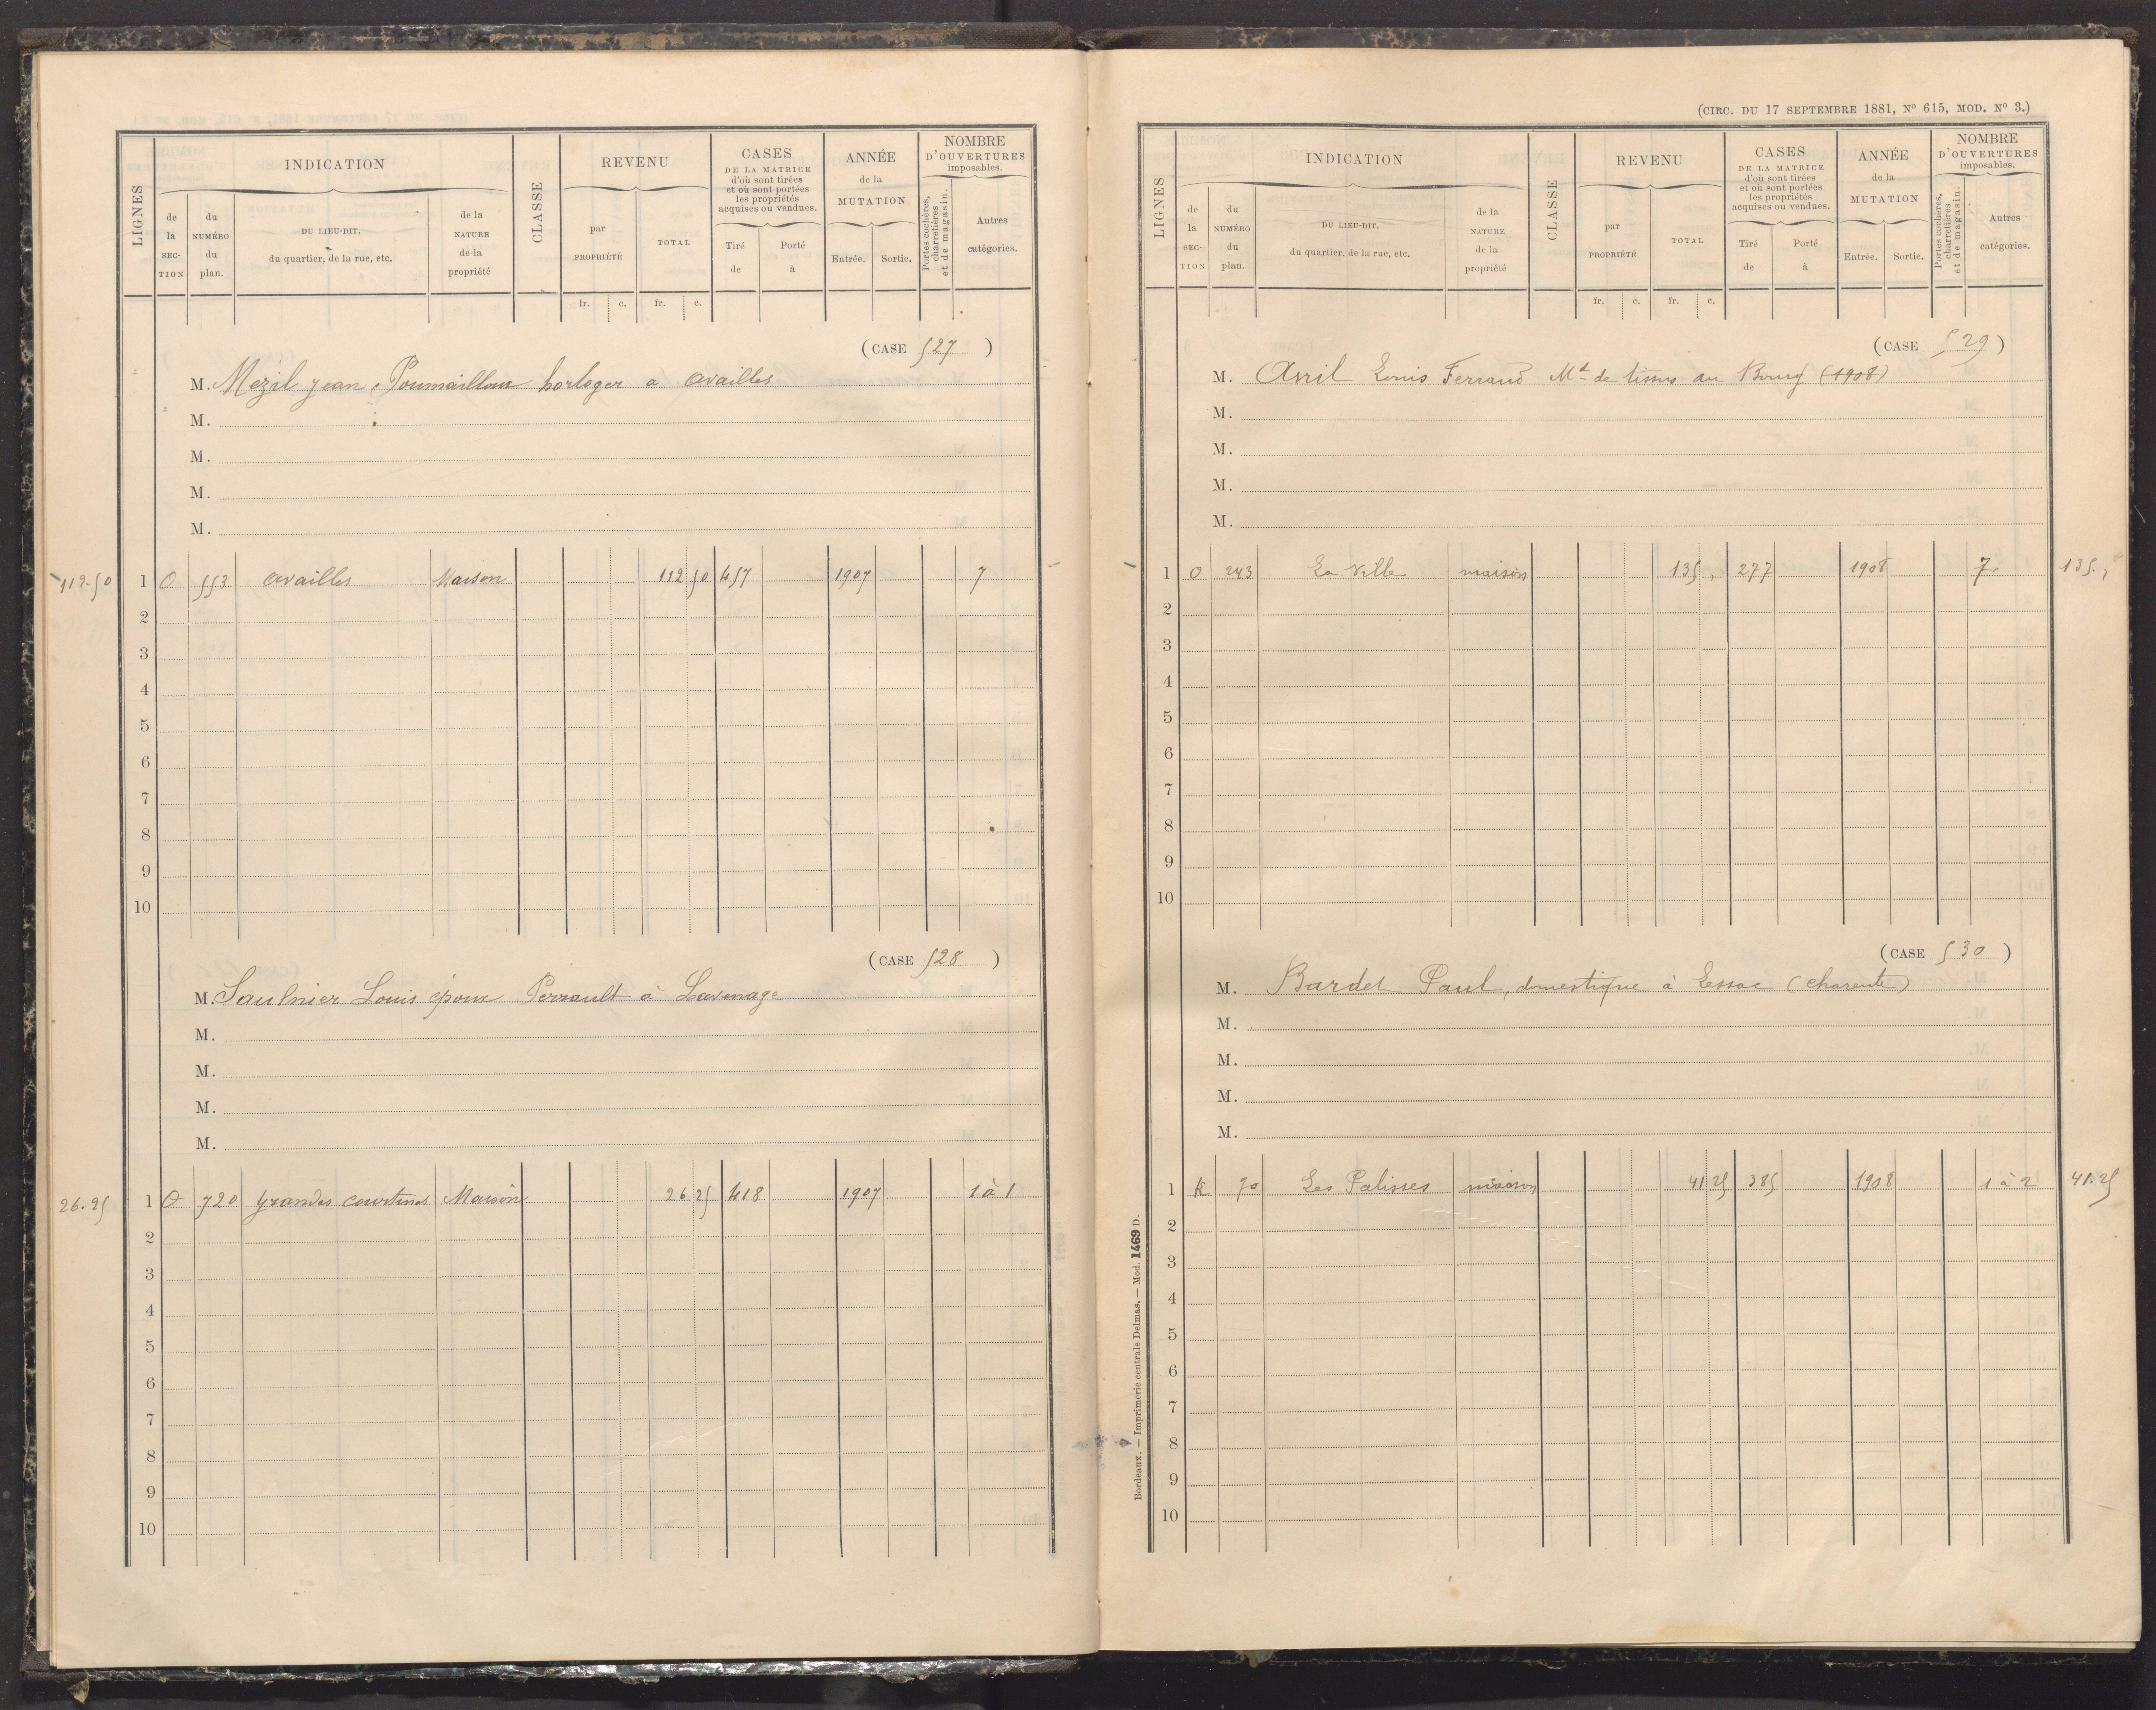 LIGNES
INDICATION
de la SECTION
du NUMÉRO du plan.
DU LIEU-DIT, du quartier, de la rue, etc.
de la NATURE de la propriété
CLASSE
REVENU
par PROPRIÉTÉ
TOTAL
CASES DE LA MATRICE d'où sont tirées et où sont portées les propriétés acquises ou vendues.
Tiré de
Porté à
ANNÉE de la MUTATION
Entrée.
Sortie.
NOMBRE D'OUVERTURES imposables.
Portes cochères, charretières et de magasin.
Autres catégories.
fr. c. fr. c.
(CASE 527)
M. Mezil Jean, horloger a availles
M.
M.
M.
M.
112.50 1 O 553 availles Maison 112 50 457 1907 7
2
3
4
5
6
7
8
9
10
(CASE 528)
M. Saulnier Louis époux Perrault à Lavenage
M.
M.
M.
M.
26.25 1 O 720 grandes courtines Maison 26 25 418 1907 1 à 1
2
3
4
5
6
7
8
9
10
(CIRC. DU 17 SEPTEMBRE 1881, Nº 615, MOD. Nº 3.)
LIGNES
INDICATION
de la SECTION
du NUMÉRO du plan.
DU LIEU-DIT, du quartier, de la rue, etc.
de la NATURE de la propriété
CLASSE
REVENU
par PROPRIÉTÉ
TOTAL
CASES DE LA MATRICE d'où sont tirées et où sont portées les propriétés acquises ou vendues.
Tiré de
Porté à
ANNÉE de la MUTATION
Entrée.
Sortie.
NOMBRE D'OUVERTURES imposables.
Portes cochères, charretières et de magasin.
Autres catégories.
fr. c. fr. c.
(CASE 529)
M. Avril Louis Ferrand Md de tissus au Bourg (1908)
M.
M.
M.
M.
1 O 243 La Ville maison 135 , 277 1908 7 135.,
2
3
4
5
6
7
8
9
10
(CASE 530)
M. Bardet Paul, domestique à Lessac (charente)
M.
M.
M.
M.
1 K 70 Les Palisses maison 41 25 385 1908 1 à 2 41.25
2
3
4
5
6
7
8
9
10
Bordeaux. — Imprimerie centrale Delmas. — Mod. 1469 D.